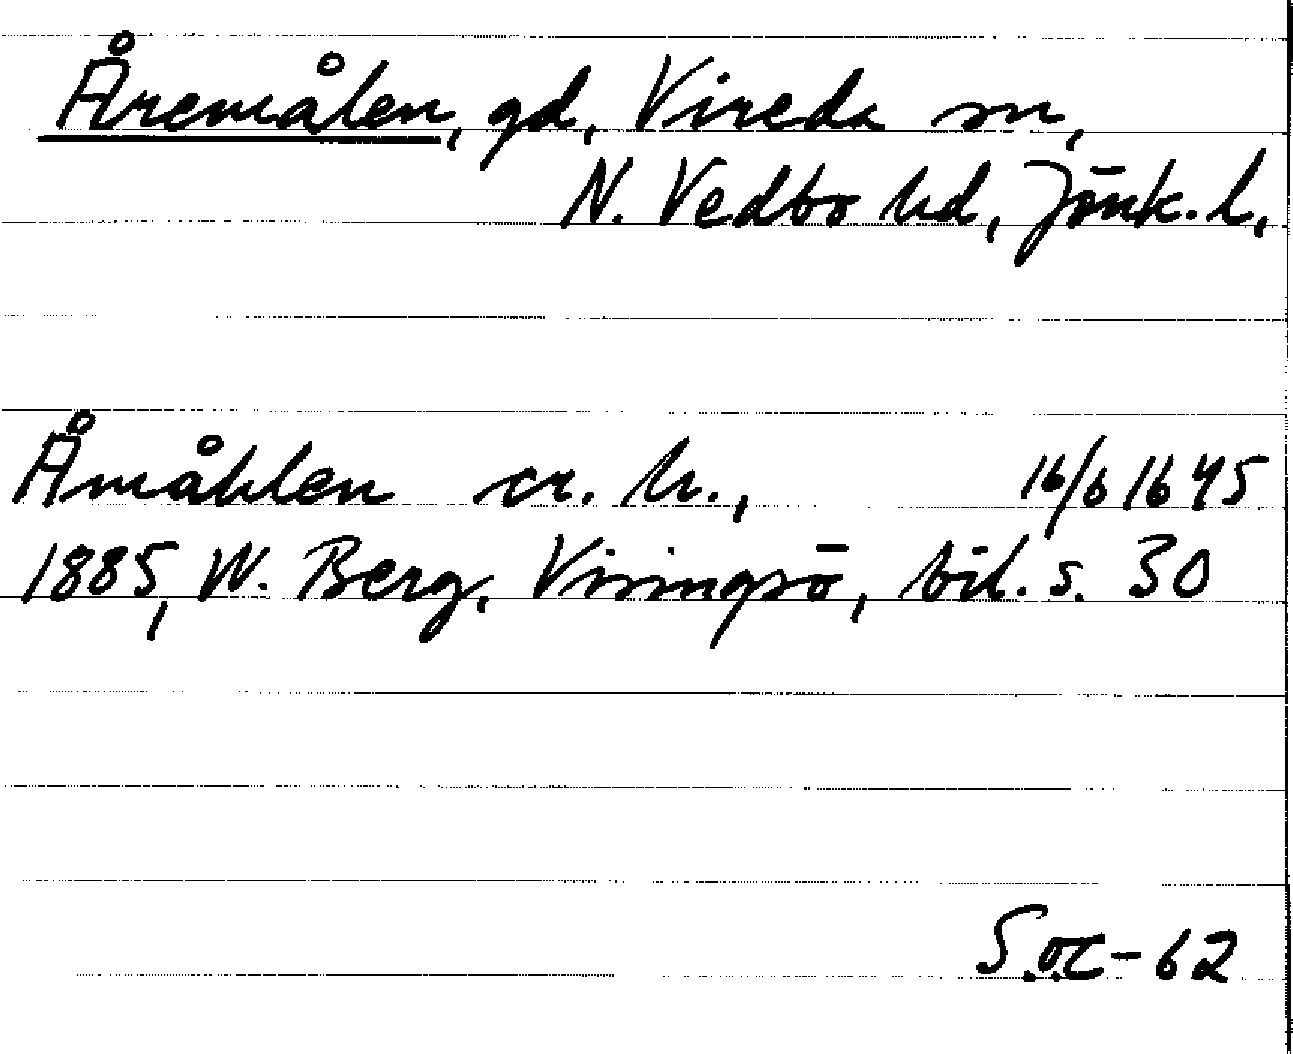 Åremålen, gd, Vireda sn,
N. Vedbo hd, Jönk. l.
Åmåhlen cr. h., 16/6 1645
1885, W. Berg, Visingsö, bil. s. 30
S.o.C-62